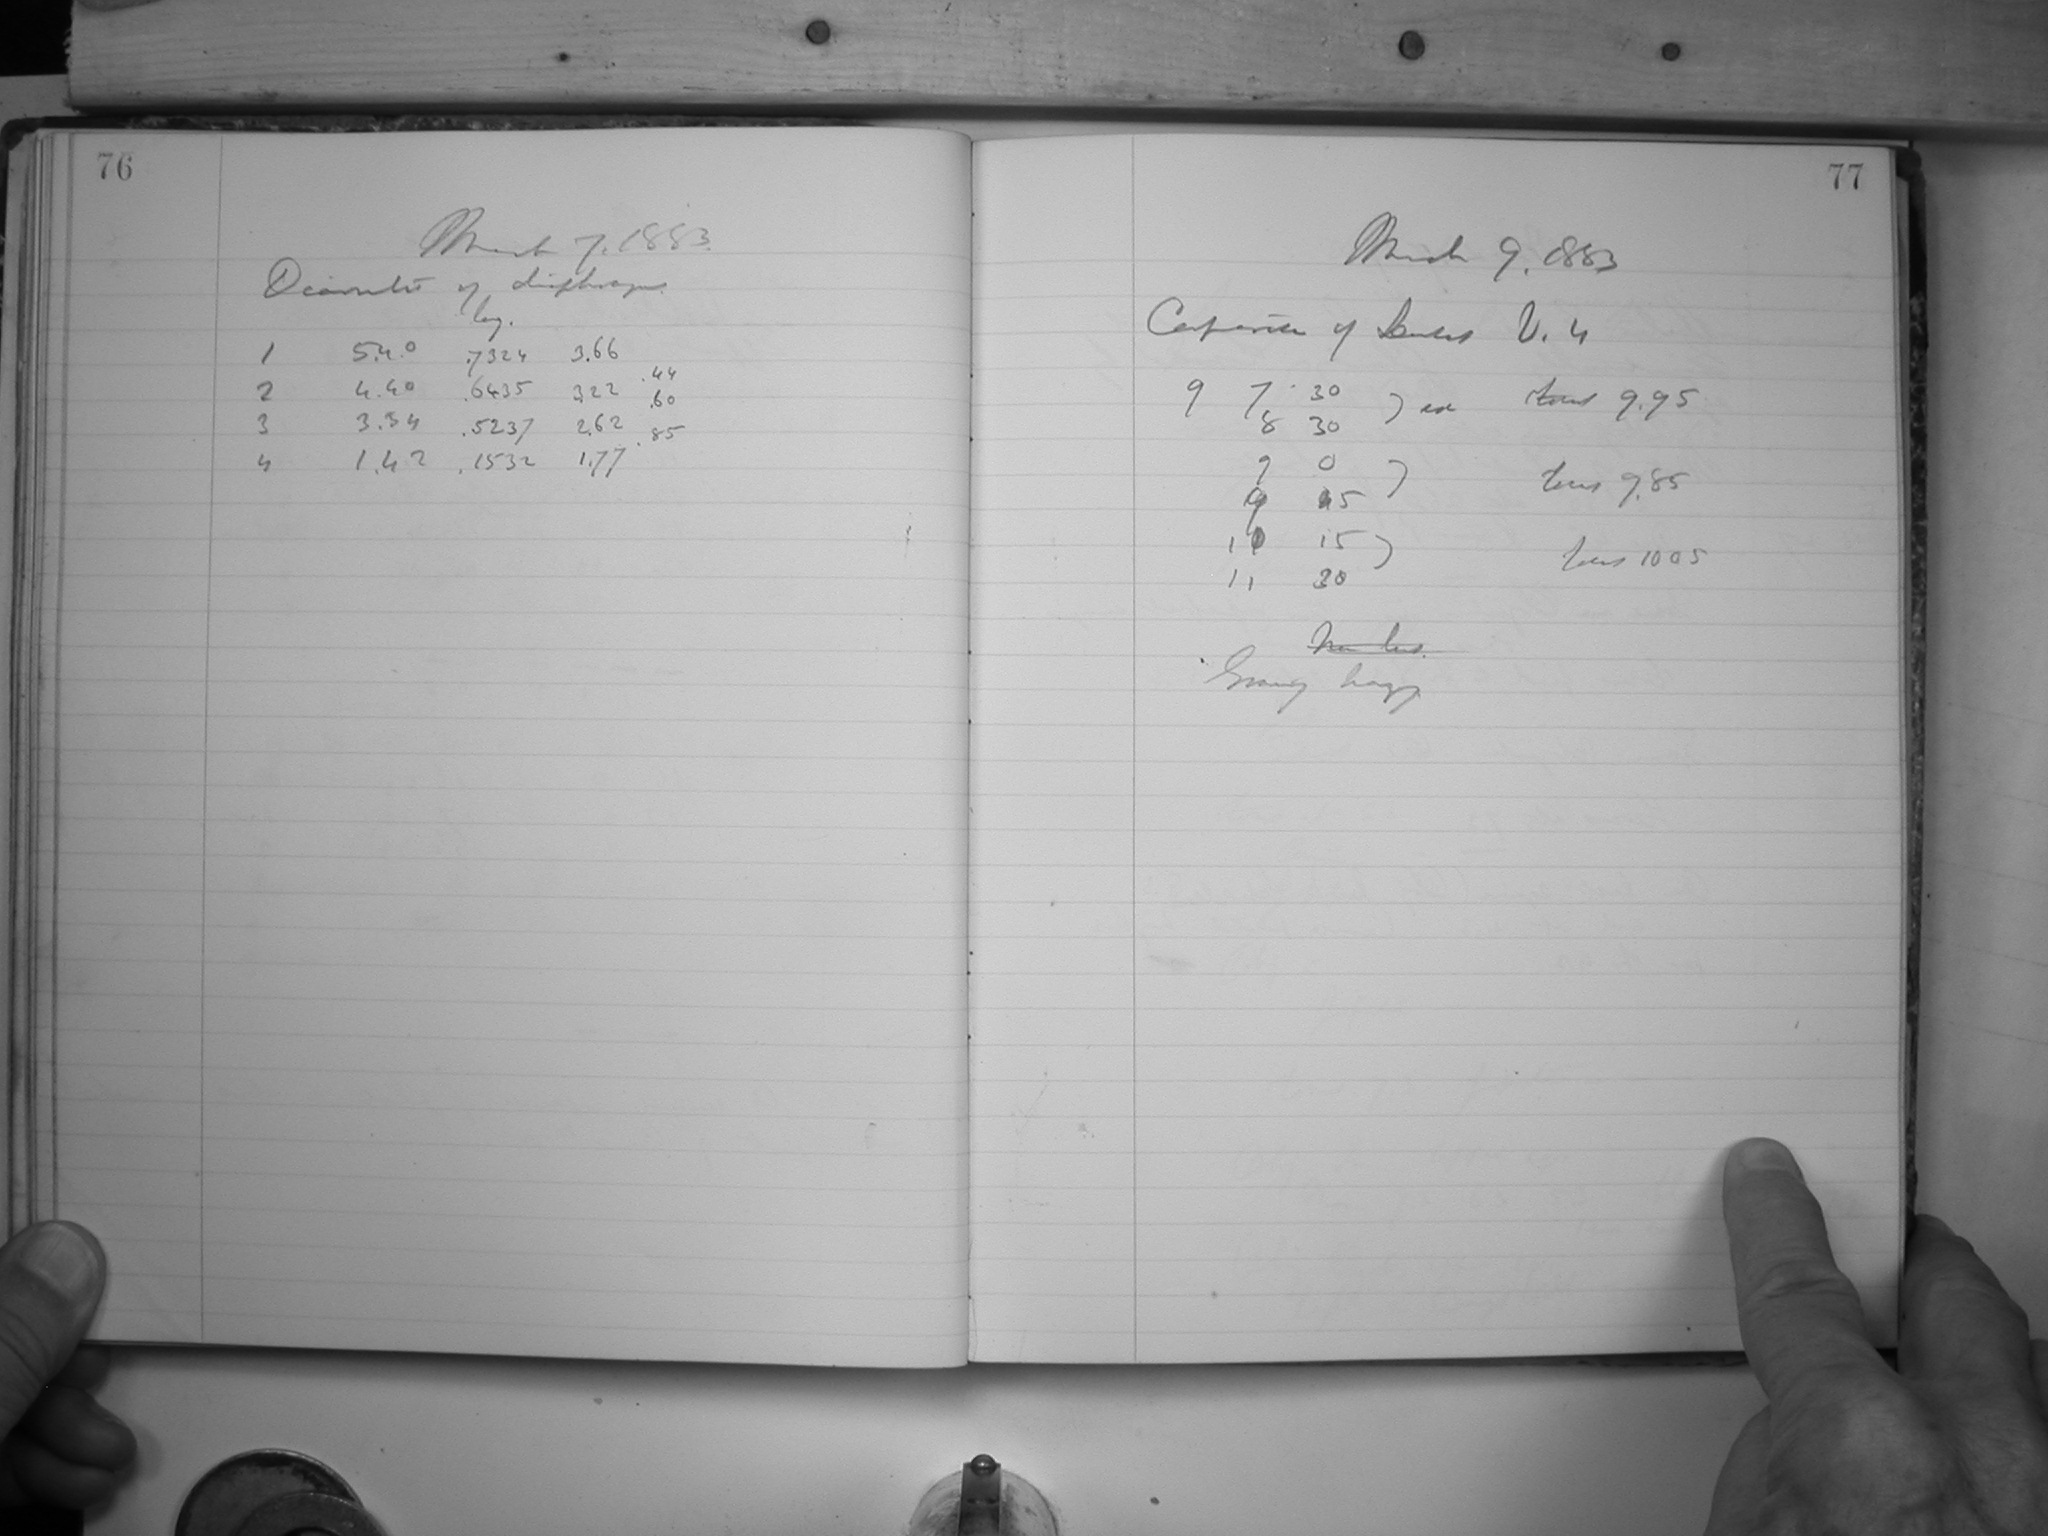 76
March 7. 1883.
Diameter of diaphragms
log.
1 5.40 .7324 3.66
2 4.40 .6435 3.22 .44
3 3.34 .5237 2.62 .60
4 1.42 .1532 1.77 .85
77
March 9. 1883
Comparison of Scales V. 4
9 7 30
8 30 9.95
9 0
9 45 9.85
11 15
11 30 1005
hazy